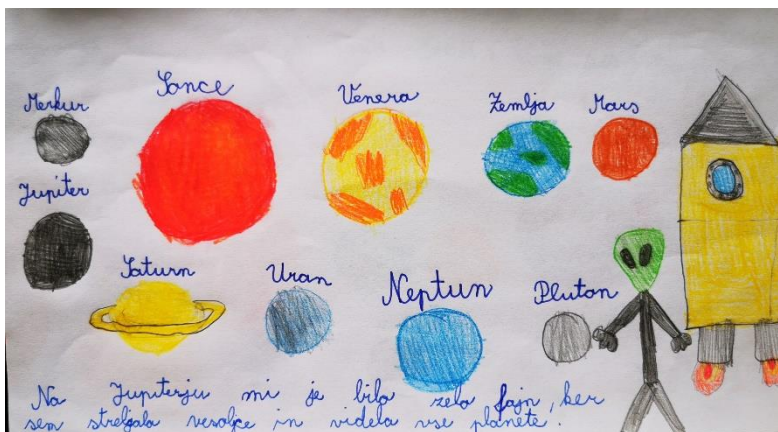 Merkur
Sonce
Venera
Zemlja
Mars
Jupiter
Saturn
Uran
Neptun
Pluton
Na Jupiterju mi je bilo zelo fajn, ker
sem streljala vesoljce in videla vse planete.